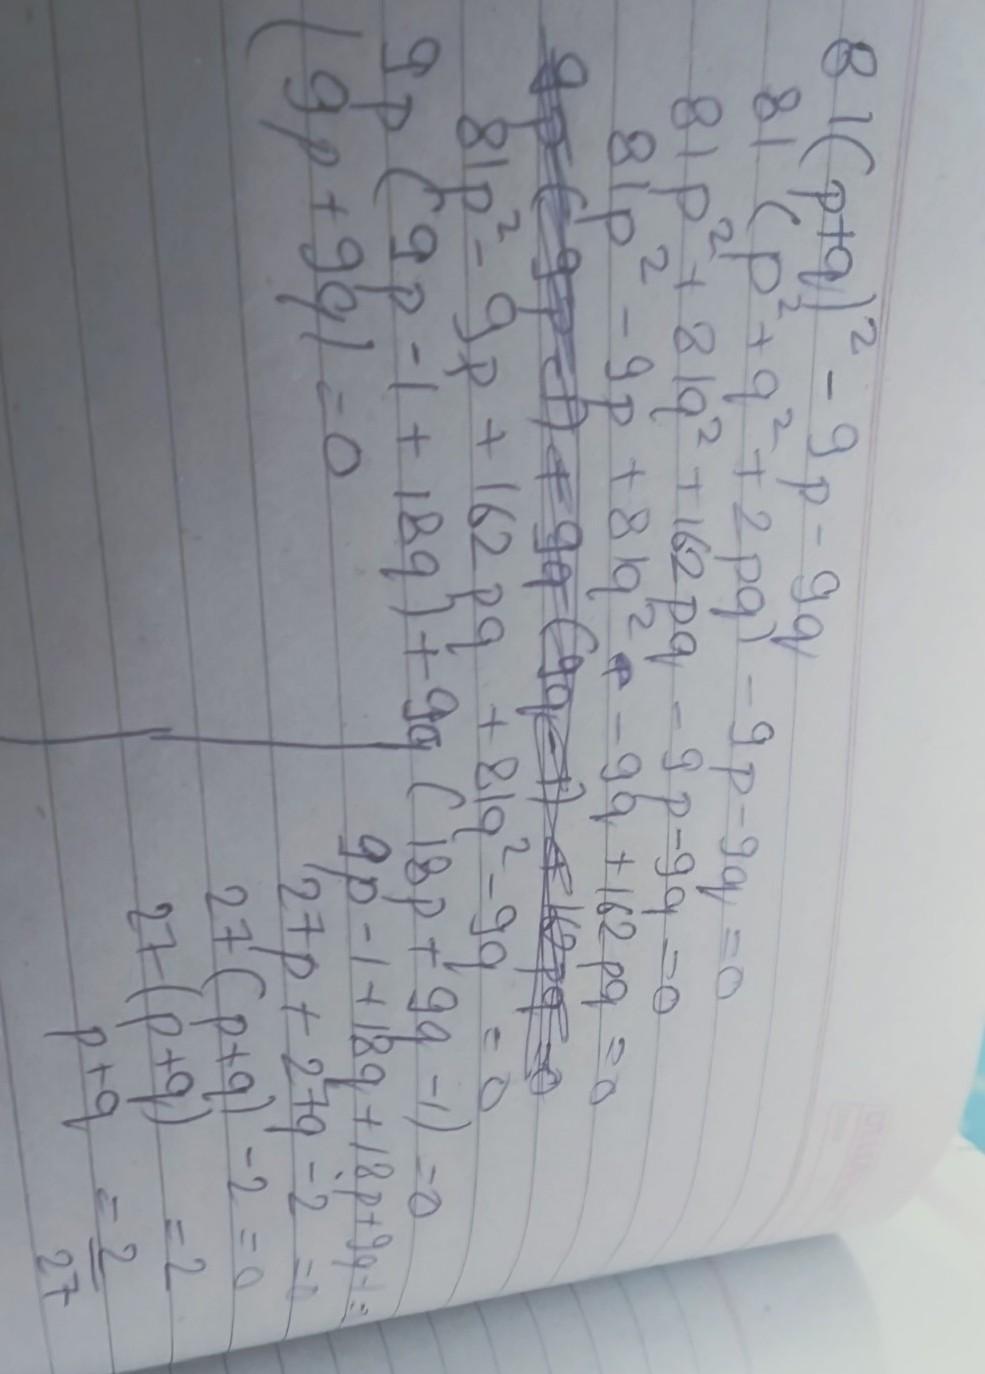 81(p+q)² - 9p - 9q
81(p² + q² + 2pq) - 9p - 9q = 0
81p² + 81q² + 162pq - 9p - 9q = 0
81p² - 9p + 81q² - 9q + 162pq = 0
9p(9p-1) + 9q(9q-1) + 162pq = 0
81p² - 9p + 162pq + 81q² - 9q = 0
9p(9p - 1 + 18q) + 9q(18p + 9q - 1) = 0
(9p + 9q) = 0
9p - 1 + 18q + 18p + 9q - 1 =
27p + 27q - 2 = 0
27(p+q) - 2 = 0
27(p+q) = 2
p+q = 2
27